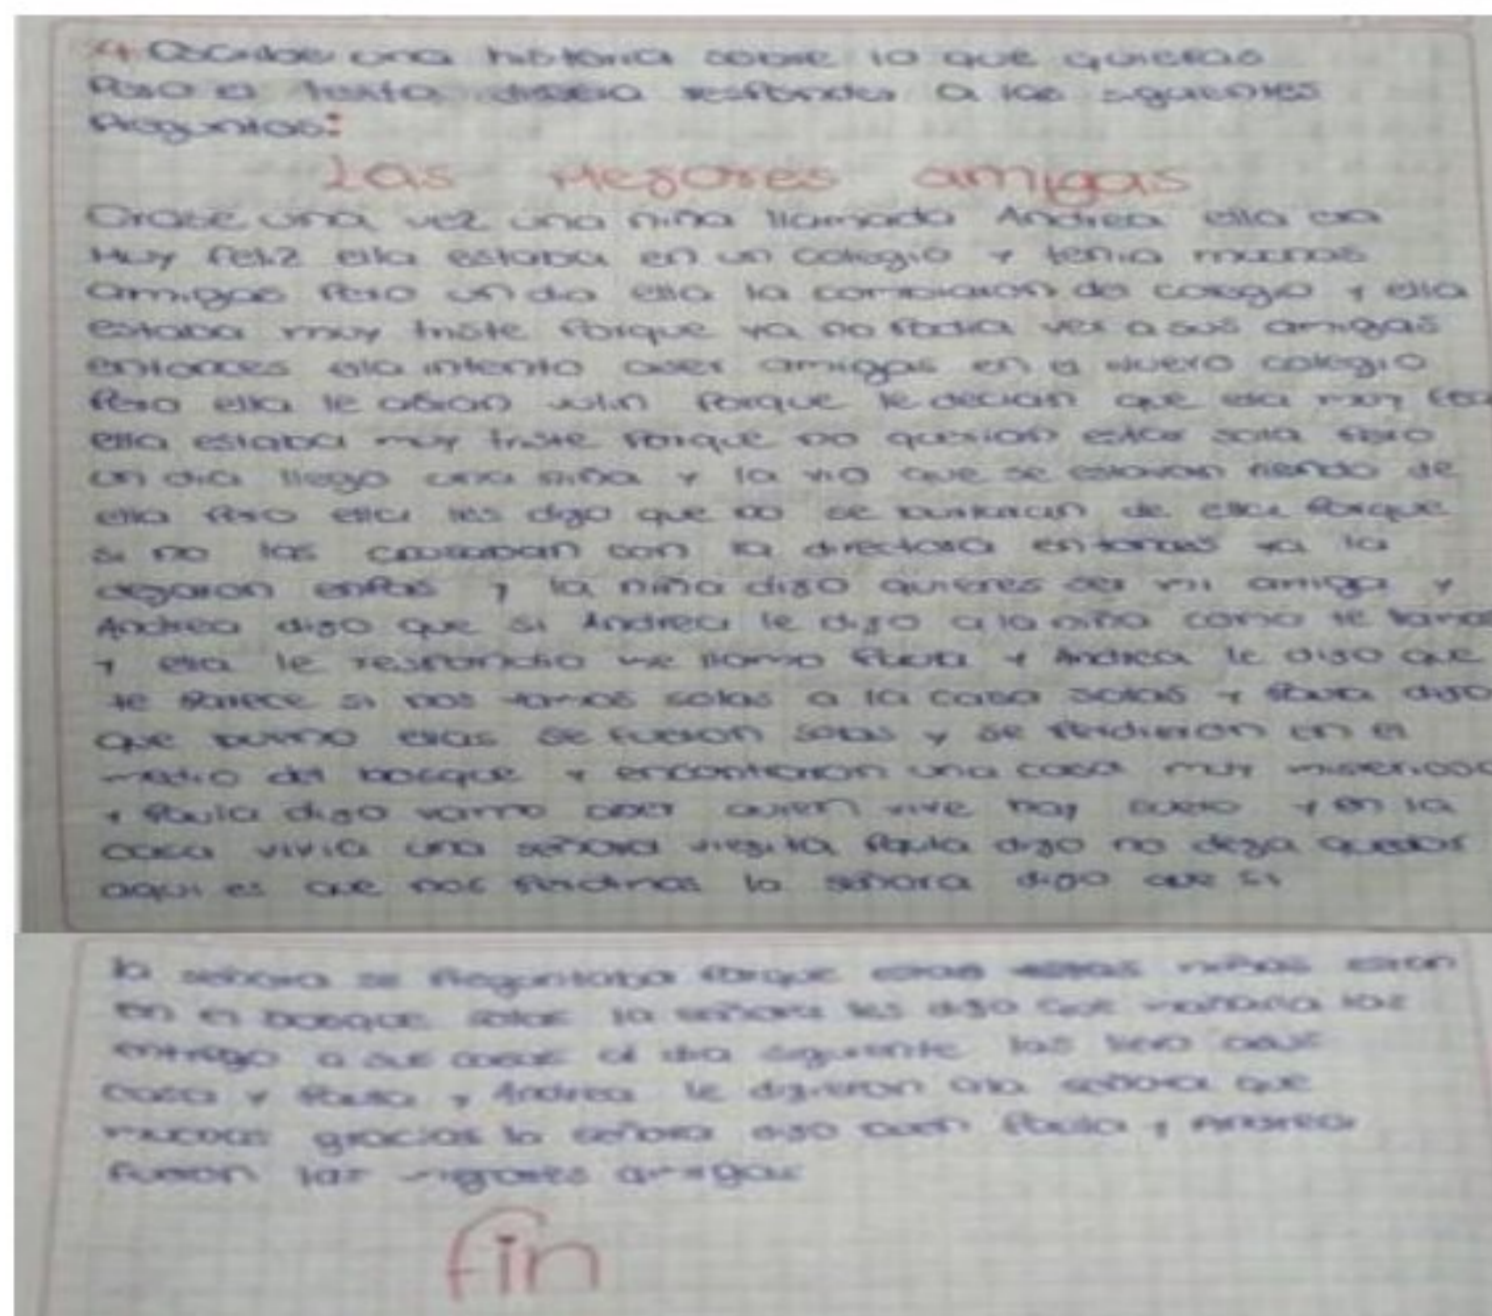 4 Escribe una historia sobre lo que quieras
Pero el texto deberia responder a las siguientes
Preguntas:
Las Mejores amigas
Erase una vez una niña llamada Andrea ella era
Muy feliz ella estaba en un colegio y tenia muchas
amigas Pero un dia ella la cambiaron de colegio y ella
estaba muy triste Porque ya no Podia ver a sus amigas
entonces ella intento aser amigas en el nuevo colegio
Pero ella le asian Porque le decian que era muy fea
ella estaba muy triste Porque no querian estar sola Pero
un dia llego una niña y la vio que se estavan riendo de
ella Pero ella les digo que no se burlaran de ella Porque
si no las con la directora entonces ya la
degaron enPas y la niña digo quieres ser mi amiga y
Andrea digo que si Andrea le digo a la niña como te llamas
y ella le respondio me llamo Paula y Andrea le digo que
te Parece si nos vamos solas a la casa solas y Paula digo
que bueno ellas se fueron solas y se Perdieron en el
medio del bosque y encontraron una casa muy misteriosa
y Paula digo vamo aber quien vive hay y en la
casa vivia una señora viegita Paula digo no dega quedar
aqui es que nos Perdimos la señora digo que si
la señora se Preguntaba Porque esas niñas estan
en el bosque solas la señora les digo que mañana las
entrego a sus casas al dia siguiente las llevo asus
casa y Paula y Andrea le digieron ala señora que
muchas gracias la señora digo Paula y Andrea
fueron las megores amigas
fin